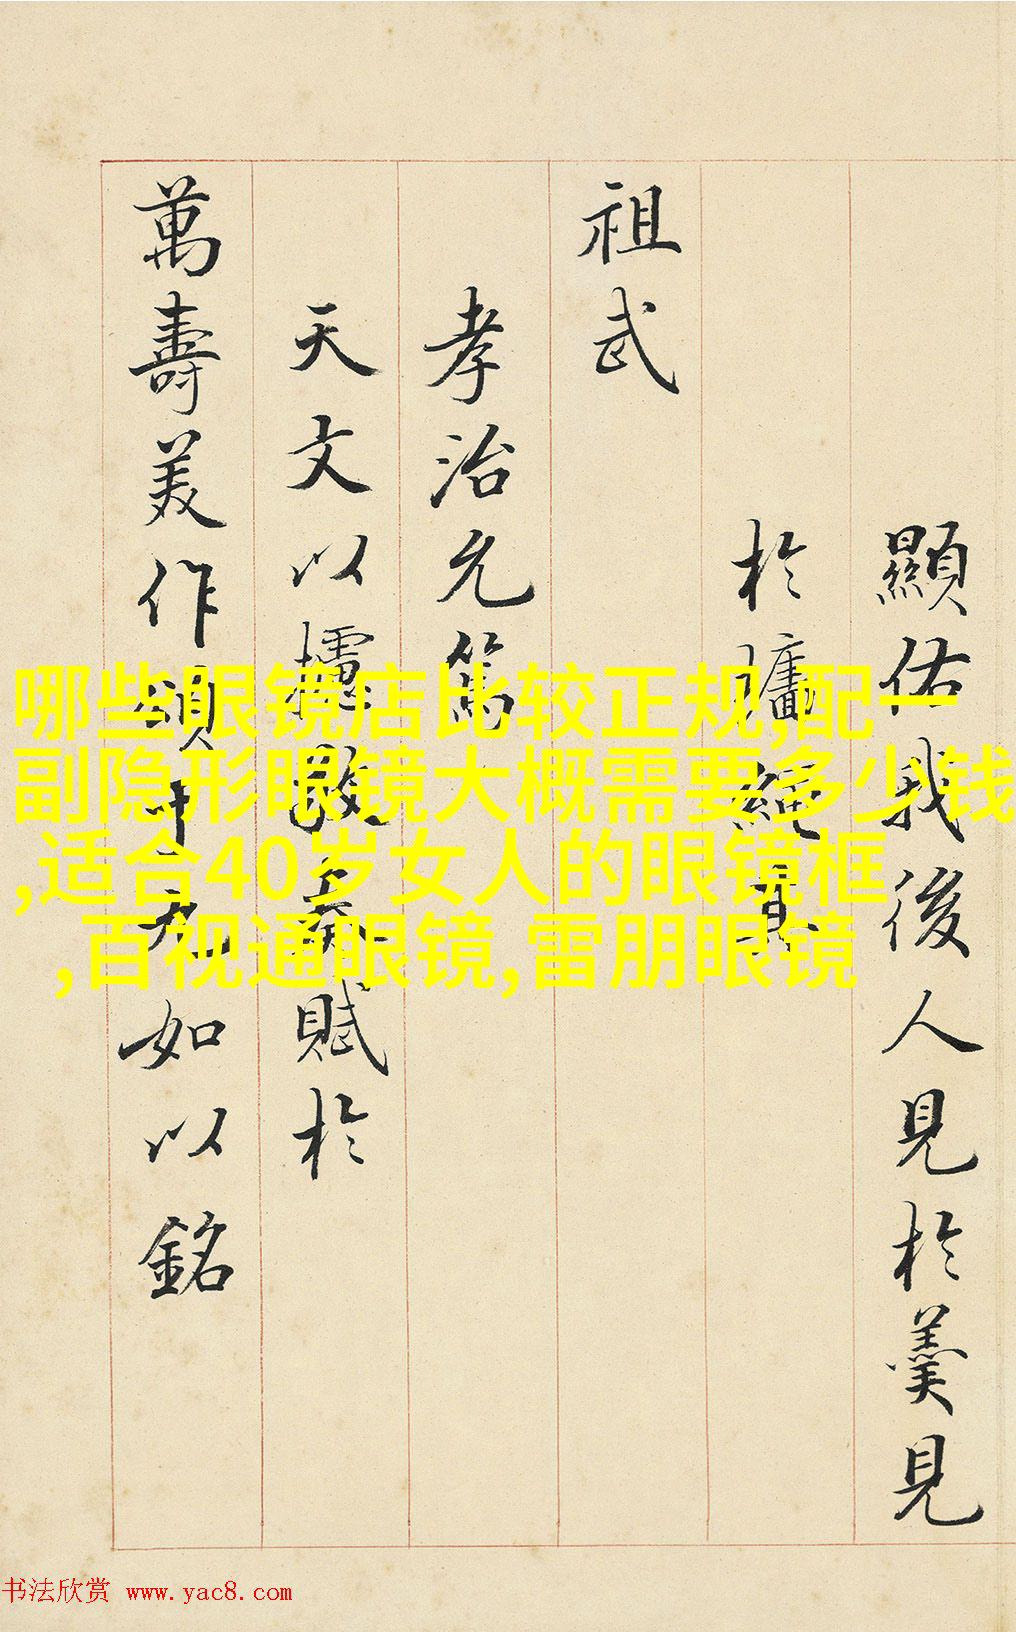 顯佑我後人見於羹見
於牆繩其
祖武
孝治允篤
天文以攄敬賦於
萬壽美作頌如以銘
哪些眼镜店比较正规,配一
副隐形眼镜大概需要多少钱
,适合40岁女人的眼镜框
,百视通眼镜,雷朋眼镜
书法欣赏 www.yac8.com